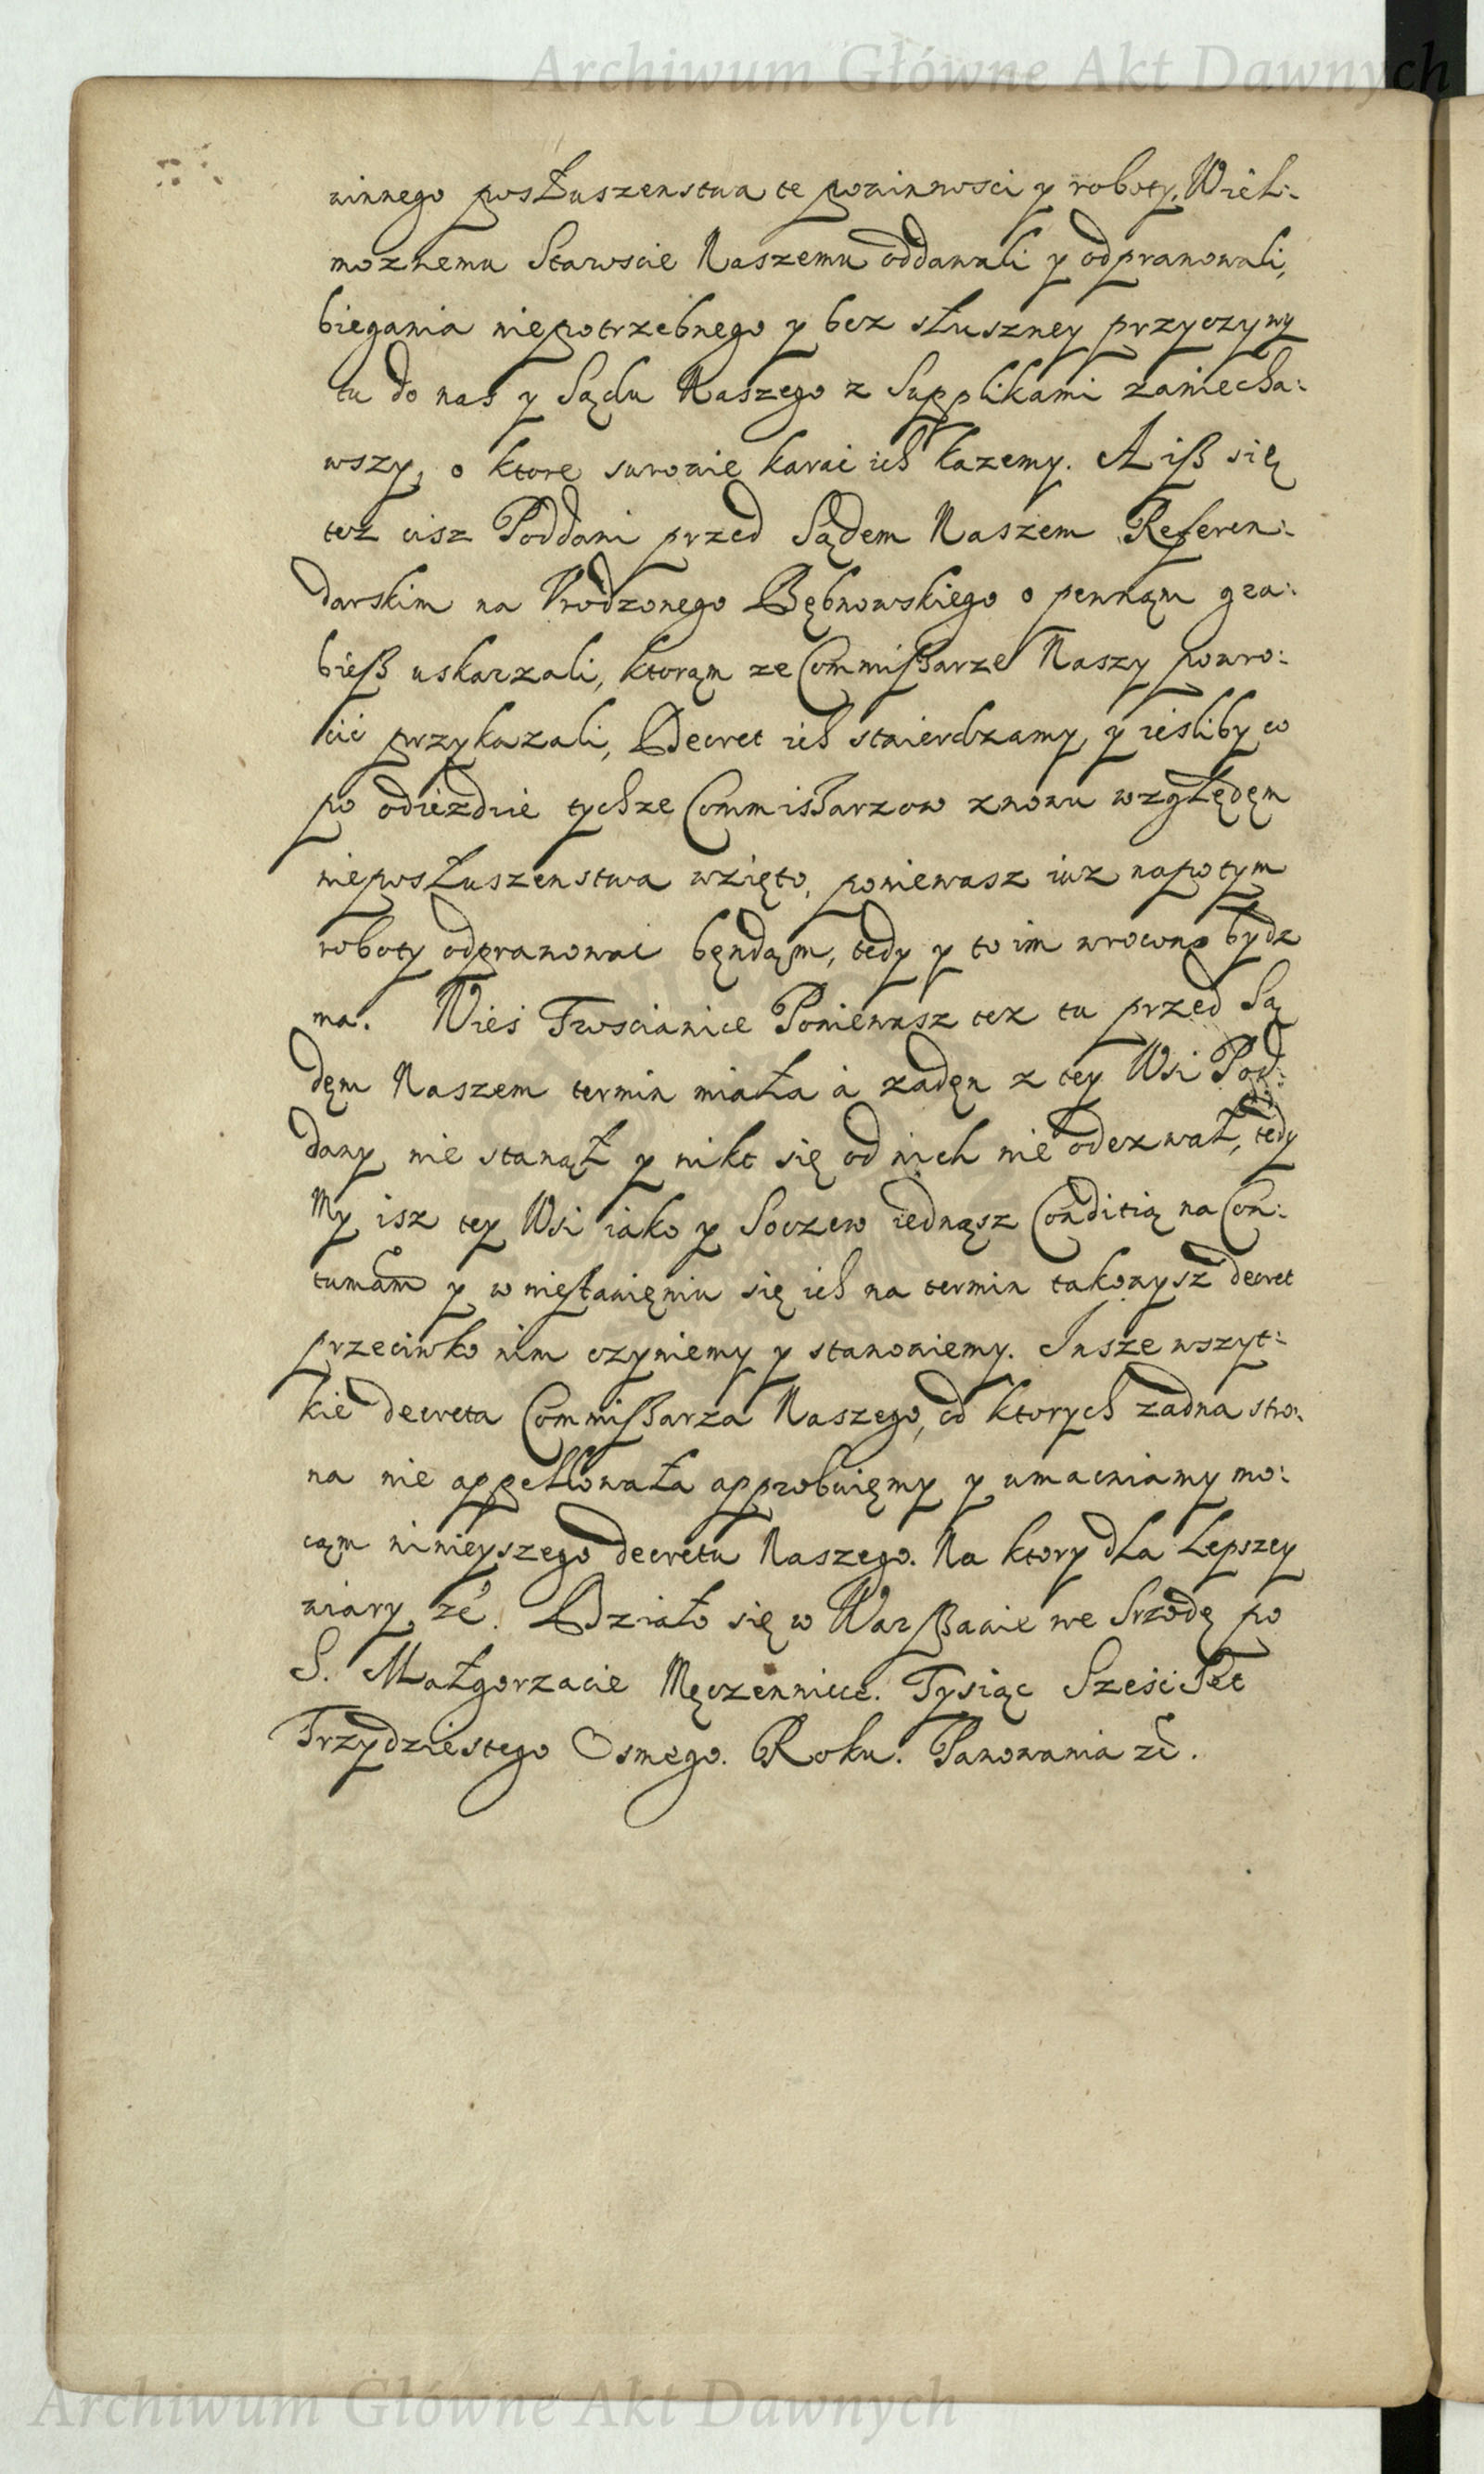 Archiwum Główne Akt Dawnych
winnego posłuszenstwa te powinnosci y roboty, Wiel:
moznemu Staroscie Naszemu oddawali y odprawowali,
biegania niepotrzebnego y bez słuszney przyczyny
tu do nas y Sądu Naszego z Supplikami zaniecha:
wszy, o ktore surowie karać ich każemy. A iß się
tez cisz Poddani przed Sądem Naszem Referen:
darskim na Vrodzonego Bębnowskiego o pewnąm gra:
bieß uskarzali, ktorąm ze Commißarze Naszy powro:
cić przykazali, Decret ich stwierdzamy, y iesliby co
po odiezdzie tychze Commissarzow znowu względęm
nieposłuszenstwa wzięto, poniewasz iuz napotym
roboty odprawowac bęndąm, tedy y to im wrocono bydz
ma. Wieś Troscianice Poniewasz tez tu przed Są
dęm Naszem termin miała á zadęn z tey Wsi Pod:
dany nie stanął y nikt się od nich nie odezwał, tedy
My isz tey Wsi iako y Soczew iednąsz Conditią na Con:
tumam y w niestawięniu się ich na termin takowysz decret
przeciwko nim czyniemy y stanowiemy. Insze wszyt:
kie decreta Commißarza Naszego, od ktorych zadna stro:
na nie appellowała approbuięmy y umacniamy mo:
cąm ninieyszego decretu Naszego. Na ktory dla Lepszey
wiary zć. Działo się w Warßawie we Srzodę po
S. Małgorzacie Męczennicce. Tysiąc Sześć Set
Trzydziestego Osmego. Roku. Panowania zć.
Archiwum Główne Akt Dawnych